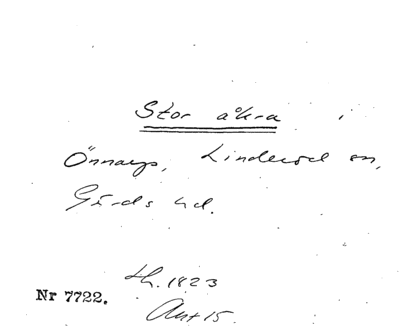 Stor åkra i
Önnarp, Linderöd sn,
Gärds hd.
th. 1823
Nr 7722.
Akt 15.